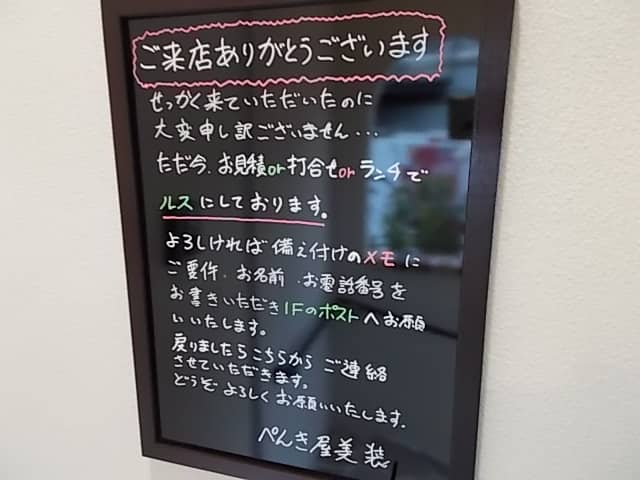 ご来店ありがとうございます
せっかく来ていただいたのに
大変申し訳ございません...
ただ今、お見積or打合せorランチで
ルスにしております。
よろしければ備え付けのメモに
ご要件、お名前、お電話番号を
お書きいただき1Fのポストへお願
いいたします。
戻りましたらこちらからご連絡
させていただきます。
どうぞよろしくお願いいたします。
ぺんき屋美装